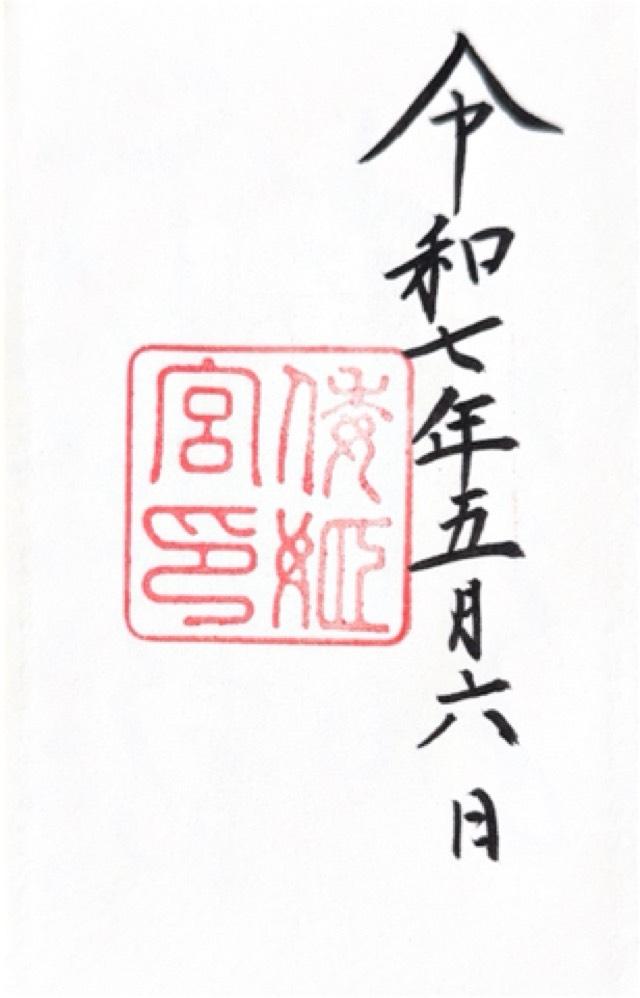 令和七年五月六日
倭姫
宮印